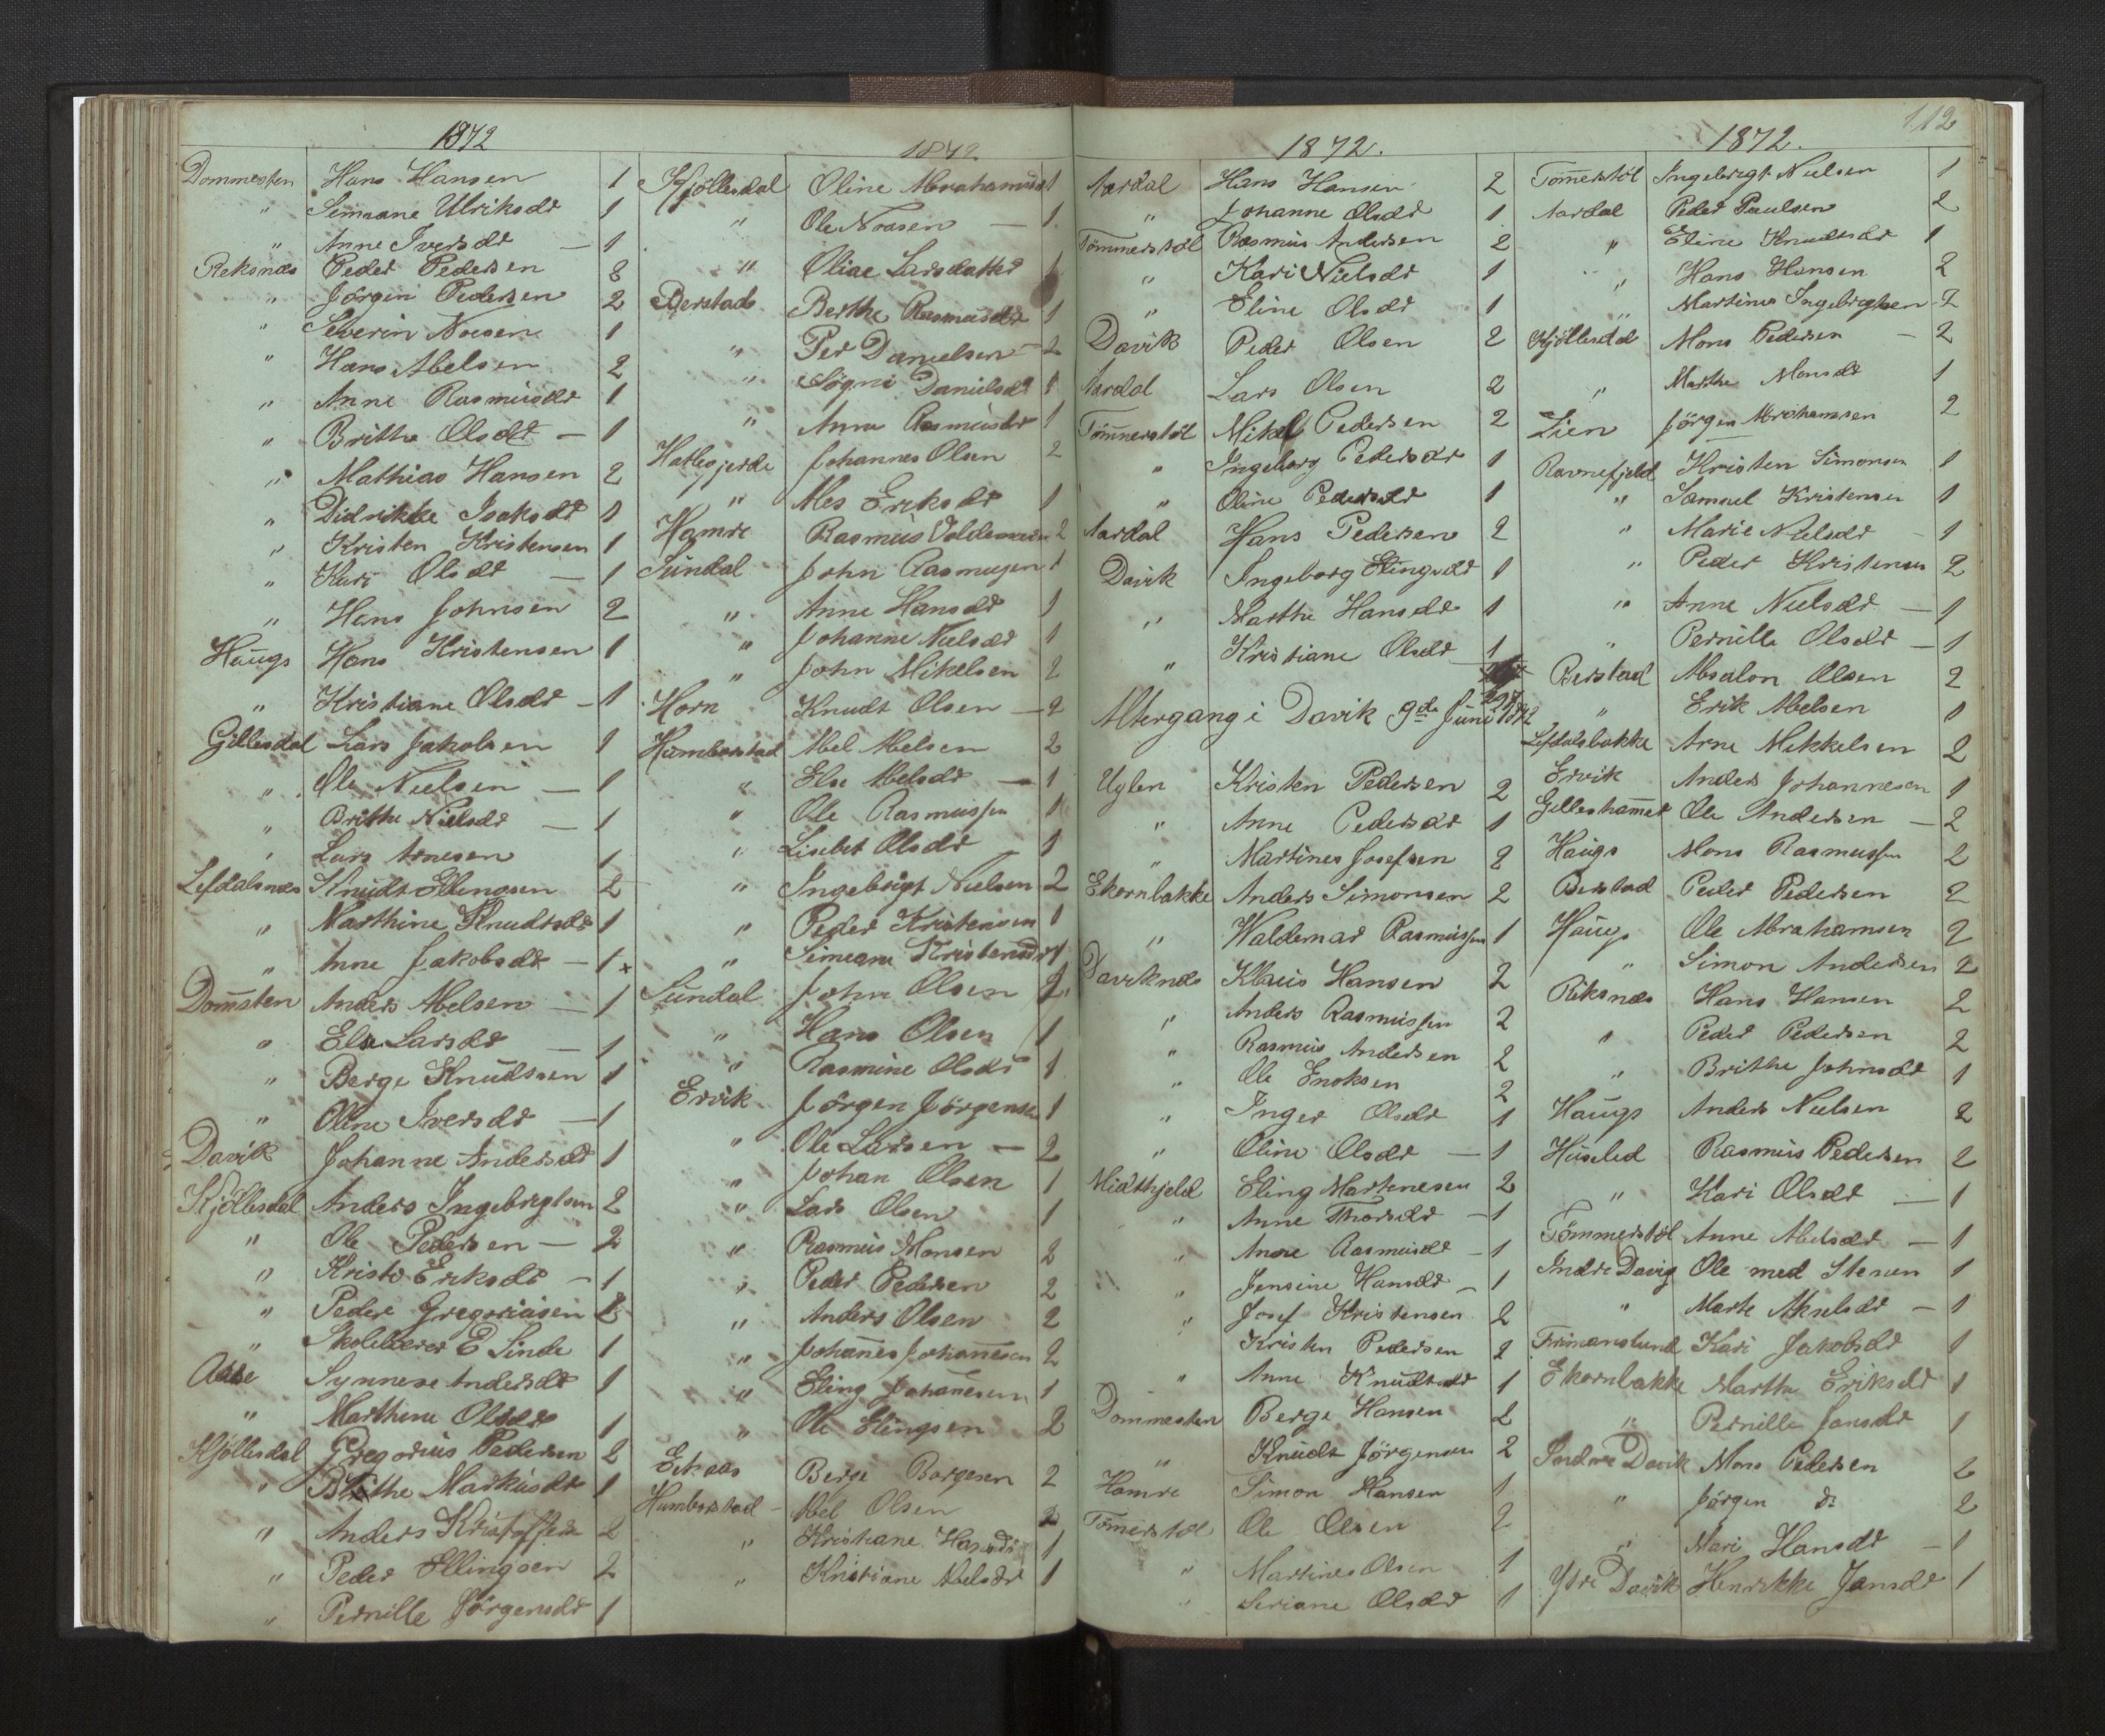 1872
Dommesten Hans Hansen 1
" Simmane Ulriksdr 1
" Anne Iversdr — 1
Reksnæs Peder Pedersen 8
" Jörgen Pedersen 2
" Severin Noesen 1
" Hans Abelsen 2
" Anne Rasmusdr 1
" Brithe Olsdr — 1
" Mathias Hansen 2
" Didrikke Isaksdr 1
" Kristen Kristensen 1
" Kari Olsdr — 1
" Hans Johnsen 2
Haugs Hans Kristensen 1
" Kristiane Olsdr — 1
Gillesdal Lars Jakobsen 1
" Ole Nielsen — 1
" Brithe Nielsdr — 1
" Lars Arnesen 1
Lefdalsnæs Knudt Ellingsen 2
" Marthine Knudtsdr 1
" Anne Jakobsdr — 1 x
Domsten Anders Abelsen — 1
" Else Larsdr — 1
" Berge Knudssen 1
" Oline Iversdr — 1
Davik Johanne Andersdr 1
Kjöllesdal Anders Ingebrigtsen 2
" Ole Pedersen — 2
" Eriksdr — 1
" Peder Gregoriusen 2
" Skolelærer E Linde 1
Aase Synneve Andersdr 1
" Marthine Olsdr 1
Kjöllesdal Gregorius Pedersen 2
" Brithe Markusdr 1
" Anders Kristoffersen 2
" Peder Ellingsen 2
" Pernille Jörgensdr 1
1872
Kjöllesdal Oline Abrahamsdr 1
" Ole Noesen — 1
" Oliae Larsdatter 1
Berstad Berthe Rasmusdr 1
" Per Danielsen — 2
" Sögni Danielsdr 1
" Anna Rasmusdr 1
Hatlegjerde Johannes Olsen 2
" Ales Eriksdr 1
Hamre Rasmus Valdemarsen 2
Sundal John Rasmusen 1
" Anne Hansdr 1
" Johanne Nielsdr 1
" John Mikelsen 2
Horn Knudt Olsen — 2
Humborstad Abel Abelsen 2
" Else Abelsdr — 1
" Ole Rasmussen 1
" Lisebet Olsdr 1
" Ingebrigt Nielsen 2
" Peder Kristensen 1
" Simeane Kristensdr 1
Sundal John Olsen 2
" Hans Olsen 1
" Rasmine Olsdr 1
Ervik Jörgen Jörgensen 1
" Ole Larsen — 2
" Johan Olsen 1
" Lars Olsen 1
" Rasmus Monsen 2
" Peder Pedersen 2
" Anders Olsen 2
" Johanes Johanesen 2
" Eling Johanesen 1
" Ole Elingsen 2
Eikaas Berge Borgesen 2
Humborstad Abel Olsen 2
" Kristiane Hansdr 1
" Kristiane Abelsdr 1
1872.
Aardal Hans Hansen 2
" Johanne Olsdr 1
Tömmerstöl Rasmus Andersen 2
" Kari Nielsdr 1
" Eline Olsdr 1
Davik Peder Olsen 2
Aardal Lars Olsen 2
Tömmerstöl Mikel Pedersen 2
" Ingeborg Pedersdr 1
" Oline Pedersdr 1
Aardal Hans Pedersen 2
Davik Ingeborg Elingsdr 1
" Marthe Hansdr 1
" Kristiane Olsdr 1
Altergang i Davik 9de Juni 1872
Uglen Kristen Pedersen 2
" Anne Pedersdr 1
" Martines Josefsen 2
Ekornbakke Anders Simonsen 2
" Waldemar Rasmussen 1
Daviknæs Klaus Hansen 2
" Anders Rasmussen 2
" Rasmus Andersen 2
" Ole Enoksen 2
" Inger Olsdr 1
" Oline Olsdr — 1
Midthjeld Eling Martinesen 2
" Anne Thorsdr — 1
" Anne Rasmusdr — 1
" Jensine Hansdr — 1
" Josef Kristensen 2
Kristen Pedersen 2
" Anne Knudtsdr 1
Dommesten Berge Hansen 2
" Knudt Jörgensen 2
Hamre Simon Hansen 1
Tömerstöl Ole Olsen 2
" Martines Olsen 1
" Seriane Olsdr 1
112
1872.
Tömerstöl Ingebrigt Nielsen 1
Aardal Peder Paulsen 2
" Eline Knudtsdr 1
" Hans Hansen 2
" Martines Ingebrigtsen 2
Kjöllesdal Mons Pedersen — 2
" Marthe Monsdr 1
Lien Jörgen Abrahamsen 2
Ravnefjeld Kristen Simonsen 1
" Samuel Kristensen 1
" Marie Nielsdr — 1
" Peder Kristensen 2
" Anne Nielsdr — 1
" Pernille Olsdr — 1
Berstad Absalon Olsen 2
" Erik Abelsen 1
Lefdalsbakke Arne Mikkelsen 2
Ervik Anders Johannesen 1
Gilleshammer Ole Andersen — 2
Haugs Mons Rasmussen 2
Berstad Peder Pedersen 2
Haugs Ole Abrahamsen 2
" Simon Andersen 2
Reksnæs Hans Hansen 2
" Peder Pedersen 2
" Brithe Johnsdr 1
Haugs Anders Nielsen 2
Huseled Rasmus Pedersen 2
" Kari Olsdr — 1
Tömmerstöl Anne Abelsdr — 1
Indre Davig Ole med Stenen 1
" Marte Akselsdr — 1
Frimanslund Kari Jakobsdr 1
Ekornbakke Marthe Eriksdr 1
" Pernille Jansdr 1
Indre Davik Mons Pedersen 2
" Jörgen do 2
" Mari Hansdr — 1
Ytre Davik Henrikke Jansdr 1